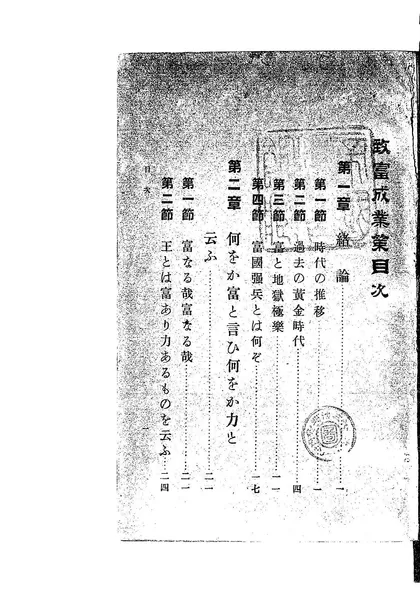 致富成業策目次
第一章 緒論……一
第一節 時代の推移……一
第二節 過去の黄金時代……四
第三節 富と地獄極樂……一一
第四節 富國强兵とは何ぞ……一七
第二章 何をか富と言ひ何をか力と
云ふ……二一
第一節 富なる哉富なる哉……二一
第二節 王とは富あり力あるものを云ふ……二四
目次
一